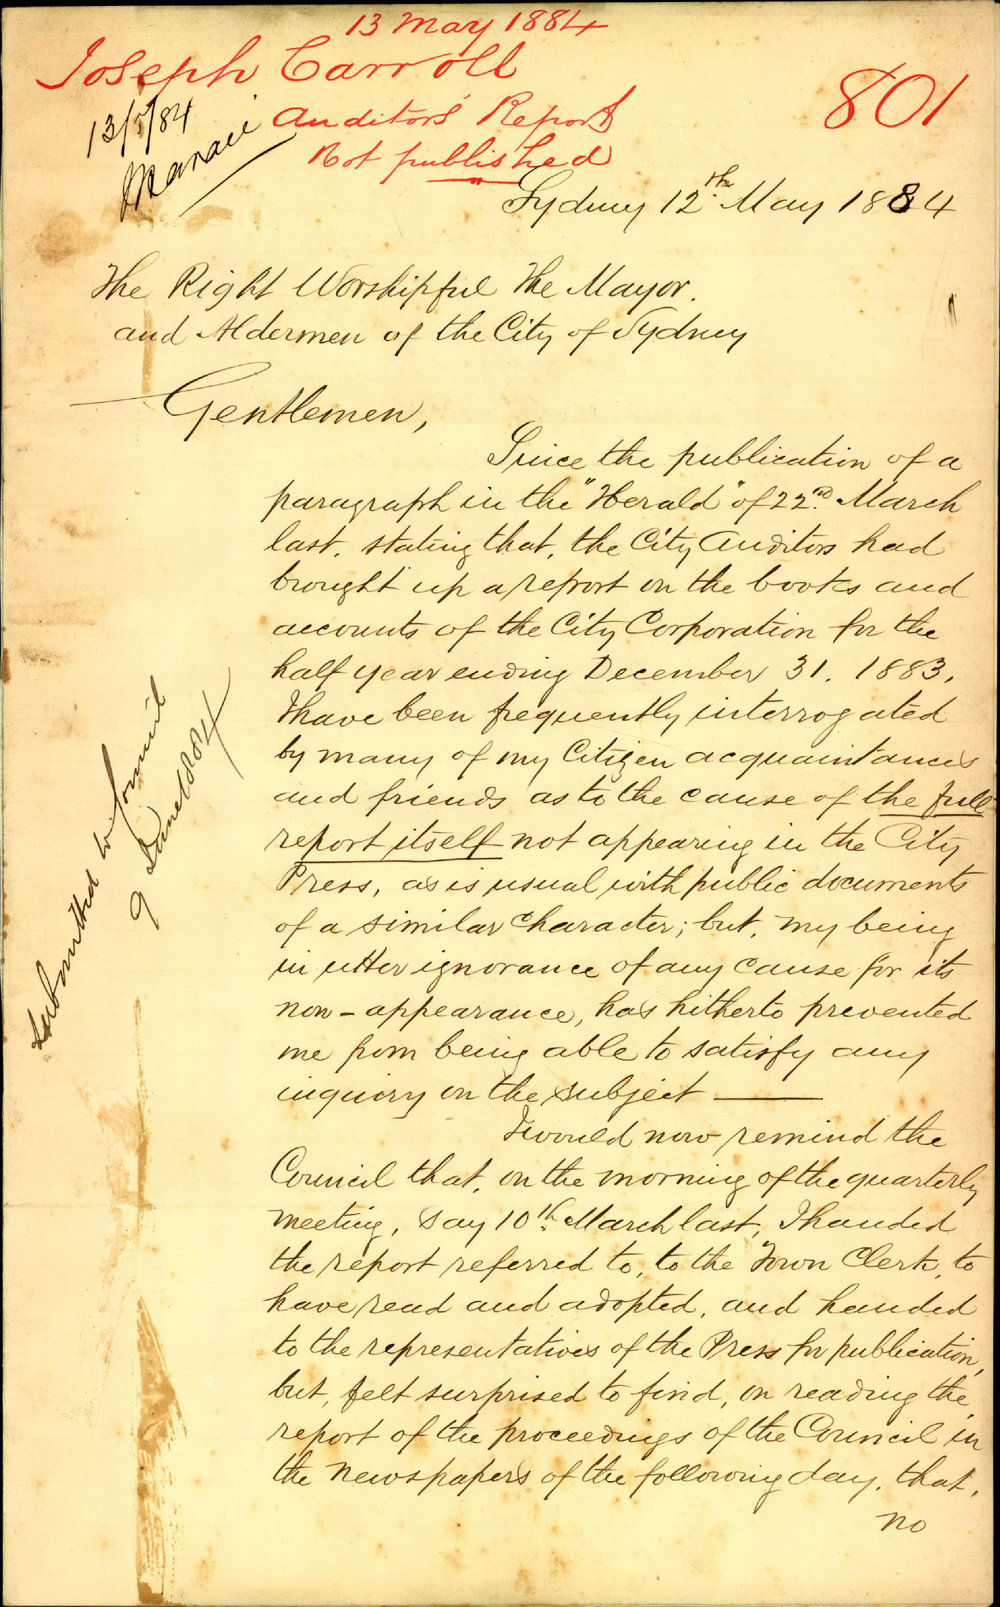 13 May 1884
Joseph Carroll
801
13/5/84
Auditors' Report
Not published
Sydney 12th May 1884
The Right Worshipful The Mayor.
and Aldermen of the City of Sydney
Gentlemen,
Since the publication of a
paragraph in the "Herald" of 22nd March
last, stating that, the City Auditors had
brought up a report on the books and
accounts of the City Corporation for the
half year ending December 31. 1883,
I have been frequently interrogated
by many of my Citizen acquaintances
and friends as to the cause of the full
report itself not appearing in the City
Press, as is usual with public documents
of a similar Character; but, my being
in utter ignorance of any cause for its
non-appearance, has hitherto prevented
me from being able to satisfy any
inquiry on the subject —
I would now remind the
Council that, on the morning of the quarterly
meeting, say 10th March last, I handed
the report referred to, to the Town Clerk, to
have read and adopted, and handed
to the representatives of the Press for publication,
but, felt surprised to find, on reading the
report of the proceedings of the Council in
the newspapers of the following day, that,
no
Submitted to Council
9 June 1884